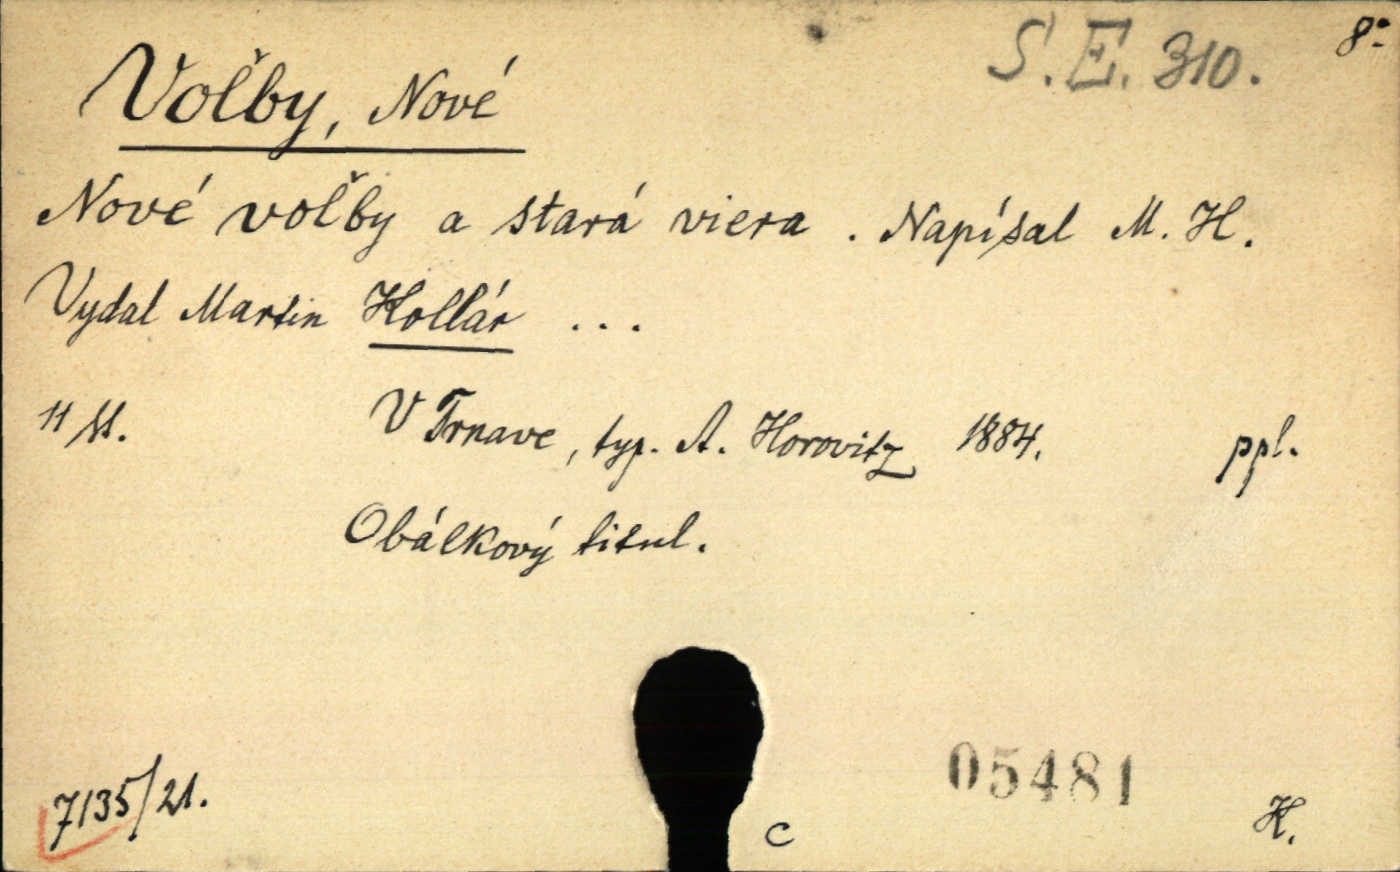 S. E. 310.
8°
Voľby, Nové
Nové voľby a stará viera. Napísal M. H.
Vydal Martin Kollár ...
V Trnave, typ. A. Horovitz 1884.
ppl.
Obálkový titul.
7135/21.
05481
C
K.